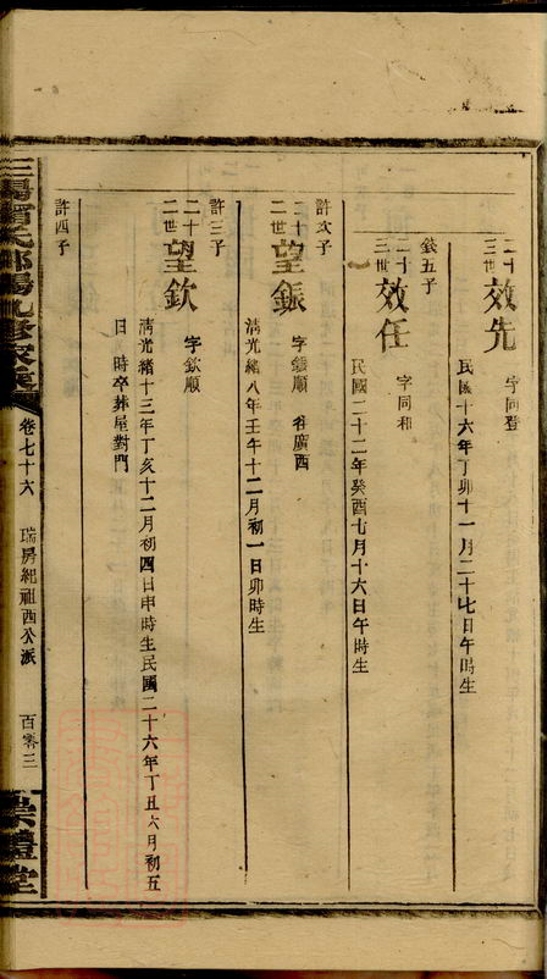 二十三世 效先 字同登
民國十六年丁卯十一月二十七日午時生
錢五子
二十三世 效任 字同和
民國二十二年癸酉七月十六日午時生
許次子
二十二世 望鋠 字鋠順 谷廣西
清光緒八年壬午十二月初一日卯時生
許三子
二十二世 望欽 字欽順
清光緒十三年丁亥十二月初四日申時生民國二十六年丁丑六月初五
日 時卒葬屋對門
許四子
卷七十六 瑞房紀祖酉公派 百零三